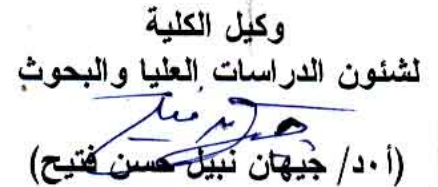 وكيل الكلية
لشئون الدراسات العليا والبحوث
(أ.د/ جيهان نبيل حسن فتيح)